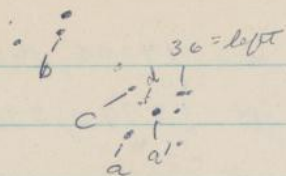 36 = left
b
d
c
a a'